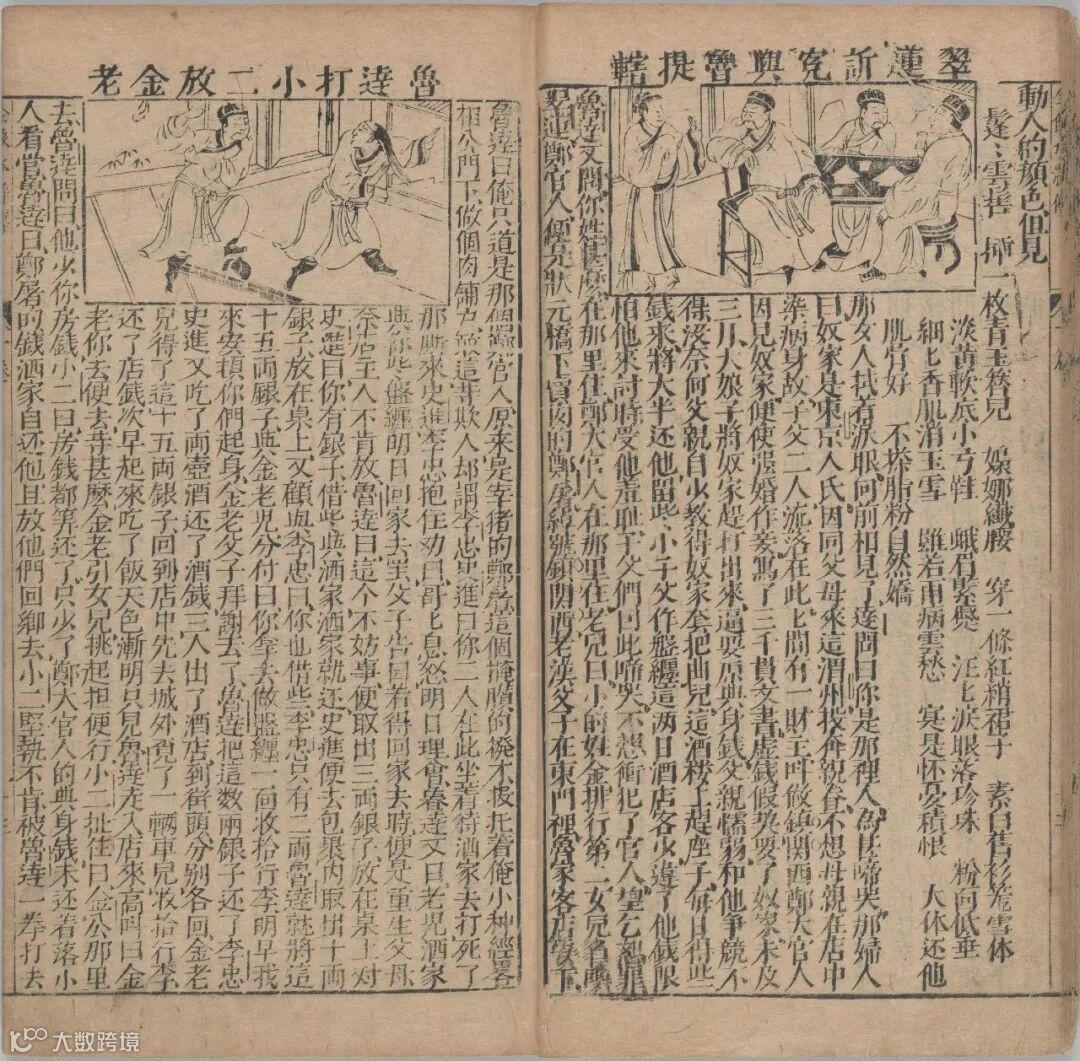 翠蓮訴寃與魯提轄
動人的顏色但見
鬔〻雲髻 揷一枚青玉簪兒 嬝娜纖腰 穿一條紅綃裙子 素白舊衫蓋雪体
淡黃軟底小弓鞋 蛾眉緊蹙 汪〻淚眼落珍珠 粉向低垂
細〻香肌消玉雪 雖若雨病雲愁 寔是怀憂積恨 大体还他
肌骨好 不搽脂粉自然嬌
那女人拭着淚眼向前相見了達問曰你是那裡人為甚啼哭那婦人
曰奴家是東京人氏因同父母來這渭州投奔親眷不想母親在店中
染病身故子父二人流落在此上間有一財主叫做鎮関西鄭大官人
因見奴家便使强婚作妾寫了三千貫文書虛錢假契要了奴家未及
三月大娘子將奴家趕打出來逼要原典身錢父親懦弱和他争競不
得没奈何父親自少教得奴家套把曲兒這酒楼上趕座子每日得些
錢來將大半还他留此小子父作盤纏這两日酒店客少違了他錢限
怕他來討時受他羞耻子父們因此啼哭不想衝犯了官人望乞恕罪
魯達又問你姓甚麽在那里住鄭大官人在那里住老兒曰小的姓金排行第一女兒名喚
翠蓮鄭官人便是狀元橋下賣肉的鄭屠綽號鎮関西老漢父子在東門裡魯家客店安下
魯達打小二放金老
魯達曰俺只道是那個鄭官人原来是宰猪的鄭屠這個腌臢的潑才投托着俺小种經畧
相公門下做個肉鋪户 這等欺人却謂李忠史進曰你二人在此坐着待酒家去打死了
那厮來史進李忠抱住劝曰哥〻息怒明日理會魯達又曰老兒酒家
與你些盤纏明日回家去罢父子告曰若得回家去時便是重生父母
奈店主人不肯放魯達曰這个不妨事便取出三两銀子放在桌上对
史進曰你有銀子借些與酒家酒家就还史進便去包裹内取出十両
銀子放在桌上又顧與李忠曰你也借些李忠只有二両魯達就將這
十五両銀子與金老兒分付曰你拿去做盤纏一面收拾行李明早我
來安頓你們起身金老父子拜謝去了魯達把這数両銀子还了李忠
史進又吃了両壺酒还了酒錢三人出了酒店到街頭分别各回金老
兒得了這十五両銀子回到店中先去城外覓了一輛車兒收拾行李
还了店錢次早起來吃了飯天色漸明只見魯達走入店來高叫曰金
老你去便去等甚麽金老引女兒挑起担便行小二扯住曰金公那里
去魯達問曰他少你房錢小二曰房錢都筭还了只少了鄭大官人的典身錢未还着落小
人看官魯達曰鄭屠的錢酒家自还他且放他們回鄉去小二堅執不肯被魯達一拳打去
大数跨境